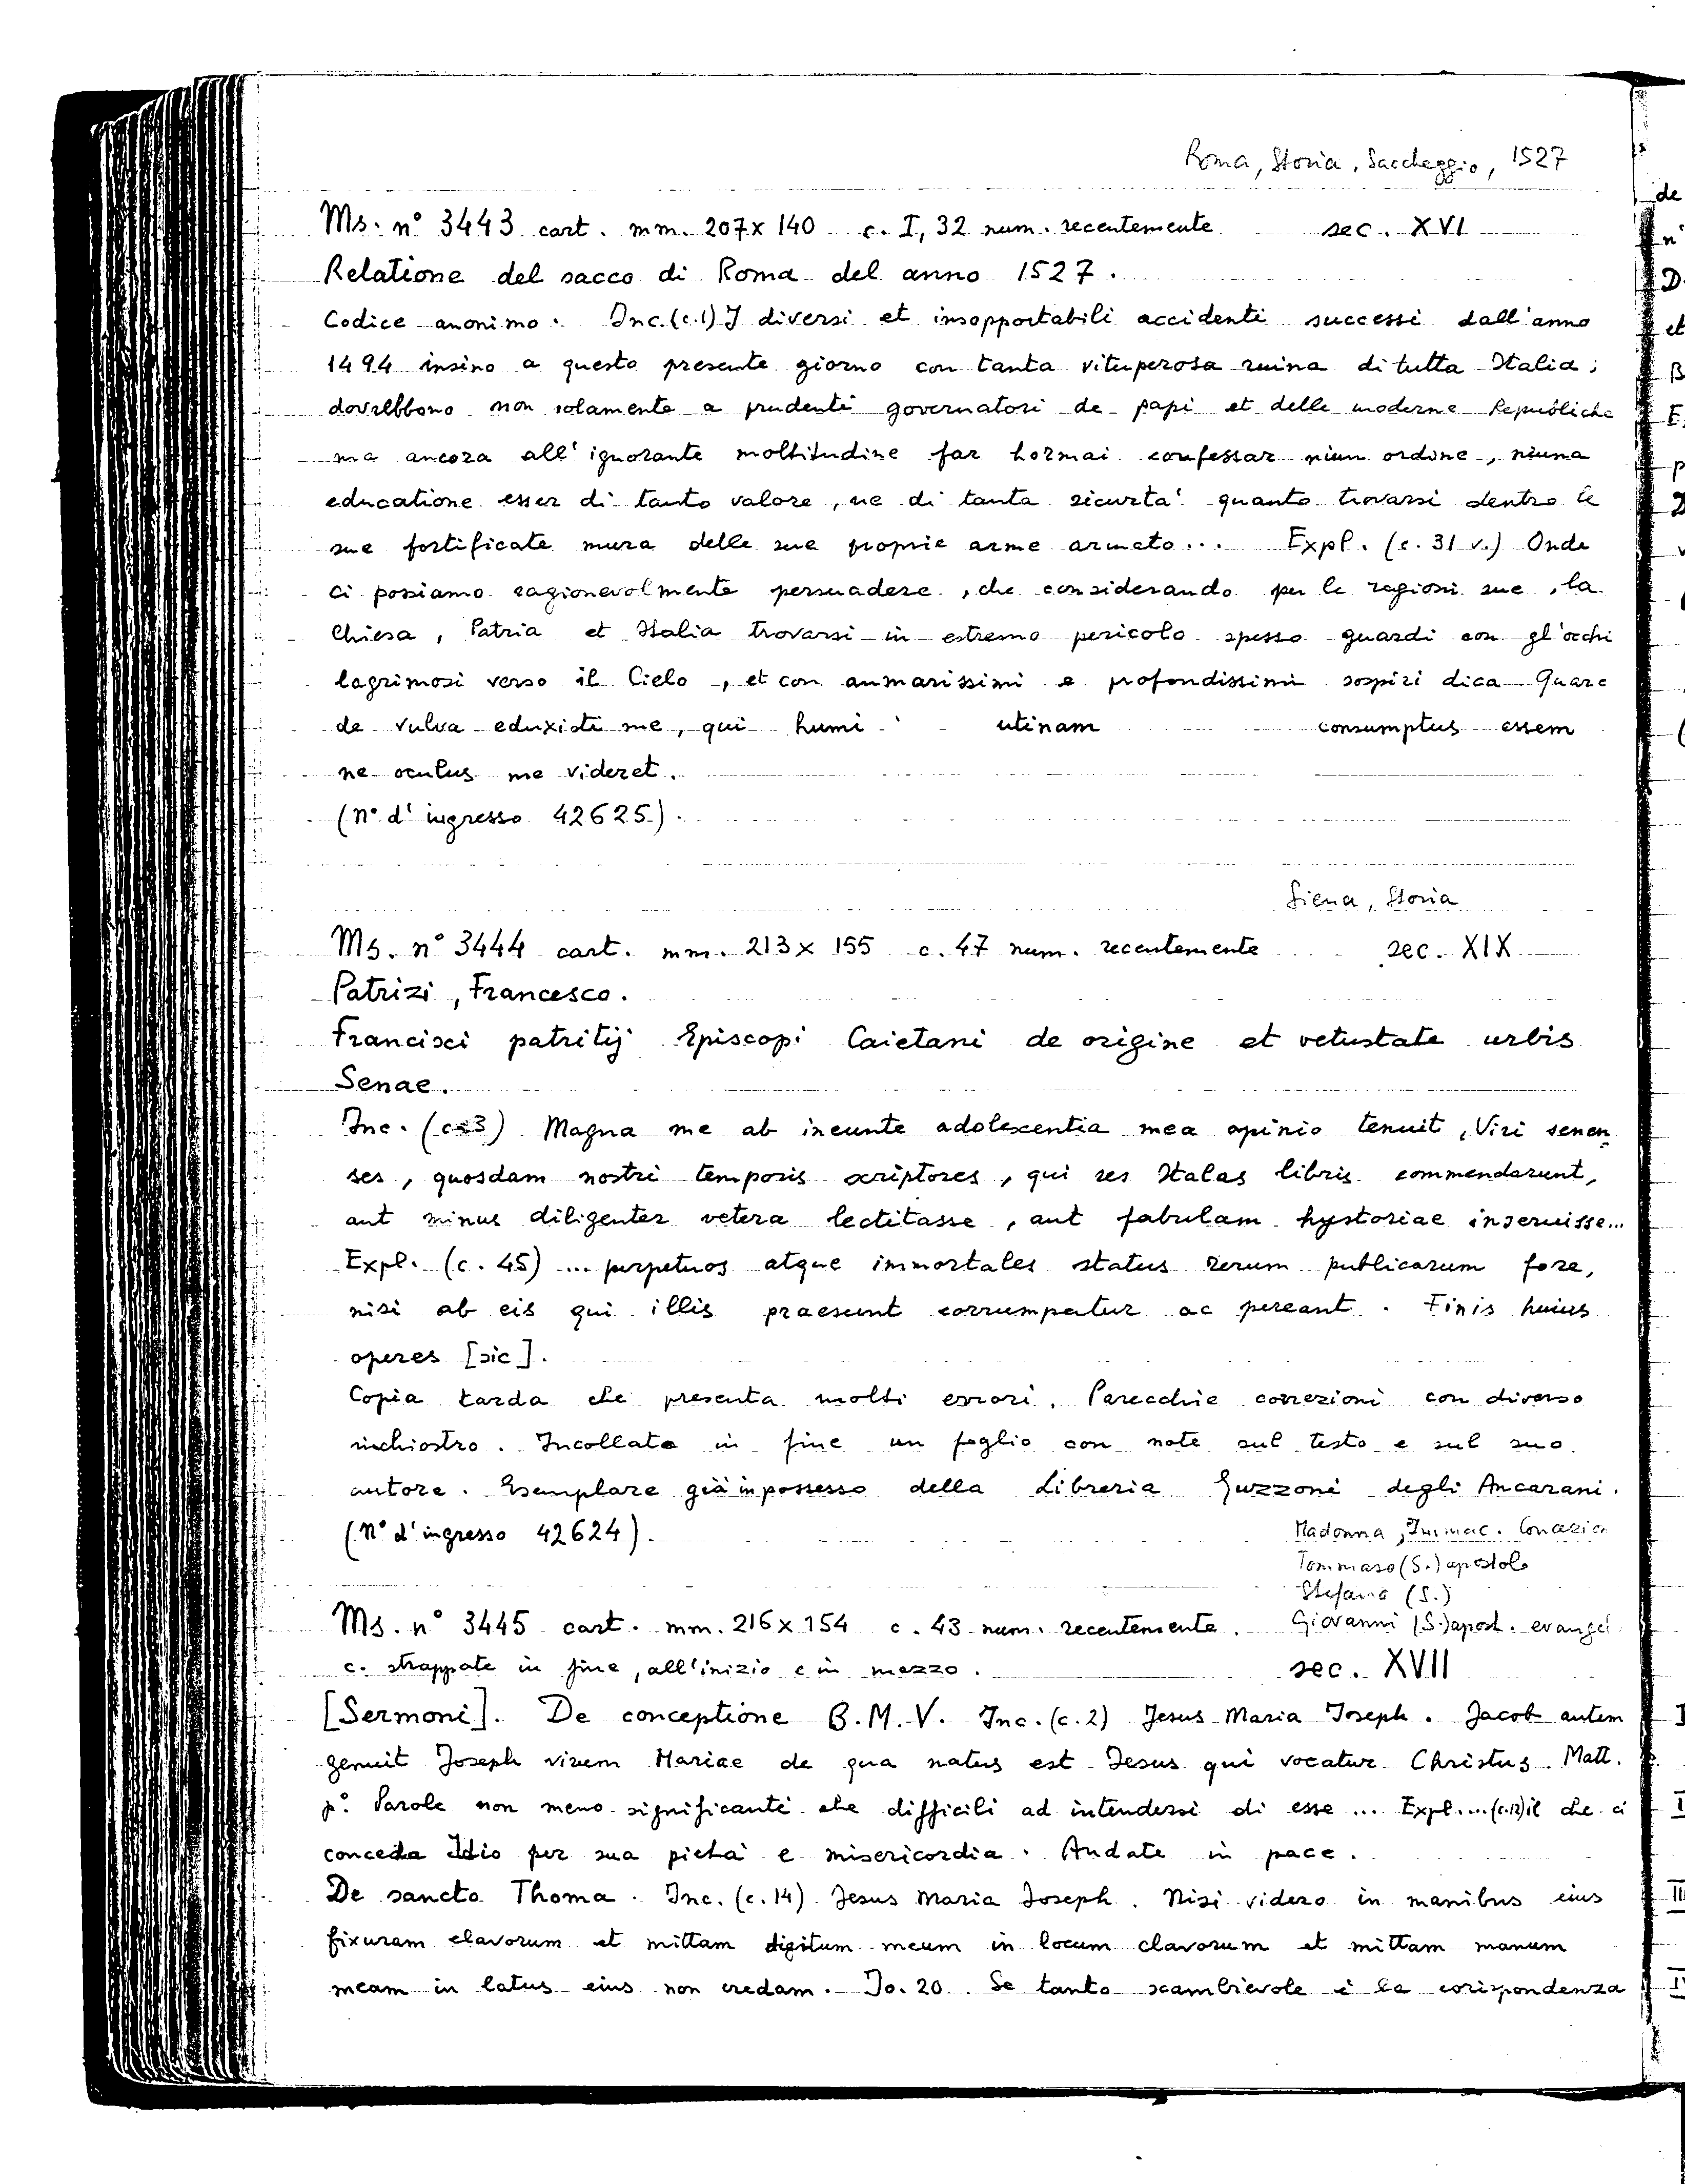 Roma, Storia, Saccheggio, 1527
Ms. n° 3443 cart. mm. 207 x 140 c. I, 32 num. recentemente sec. XVI
Relatione del sacco di Roma del anno 1527.
Codice anonimo. Inc. (c.1) I diversi et insopportabili accidenti successi dall'anno
1494 insino a questo presente giorno con tanta vituperosa ruina di tutta Italia;
dovrebbono non solamente a prudenti governatori de papi et delle moderne Republiche
ma ancora all'ignorante moltitudine far hormai confessar niun ordine, niuna
educatione esser di tanto valore, ne di tanta sicurta' quanto trovarsi dentro le
sue fortificate mura delle sue proprie arme armato... Expl. (c. 31 v.) Onde
ci possiamo ragionevolmente persuadere, che considerando per le ragioni sue, la
Chiesa, Patria et Italia trovarsi in estremo pericolo spesso guardi con gl'occhi
lagrimosi verso il Cielo, et con ammarissimi e profondissimi sospiri dica Quare
de vulva eduxisti me, qui humi utinam consumptus essem
ne oculus me videret.
(N° d'ingresso 42625).
Siena, Storia
Ms. n° 3444 cart. mm. 213 x 155 c. 47 num. recentemente sec. XIX
Patrizi, Francesco.
Francisci patritij Episcopi Caietani de origine et vetustate urbis
Senae.
Inc. (c. 3) Magna me ab ineunte adolescentia mea opinio tenuit, Viri senen
ses, quosdam nostri temporis scriptores, qui res Italas libris commendarunt,
aut minus diligenter vetera lectitasse, aut fabulam hystoriae inseruisse...
Expl. (c. 45) ... perpetuos atque immortales status rerum publicarum fore,
nisi ab eis qui illis praesunt corrumpatur ac pereant. Finis huius
operes [sic].
Copia tarda che presenta molti errori. Parecchie correzioni con diverso
inchiostro. Incollato in fine un foglio con note sul testo e sul suo
autore. Esemplare già in possesso della Libreria Guzzoni degli Ancarani.
(N° d'ingresso 42624).
Madonna, Immac. Concezion
Tommaso (S.) apostolo
Stefano (S.)
Ms. n° 3445 cart. mm. 216 x 154 c. 43 num. recentemente. Giovanni (S.) apost. evangel.
c. strappate in fine, all'inizio e in mezzo. sec. XVII
[Sermoni]. De conceptione B.M.V. Inc. (c. 2) Jesus Maria Joseph. Jacob autem
genuit Joseph virum Mariae de qua natus est Jesus qui vocatur Christus. Matt.
p°. Parole non meno significanti che difficili ad intendersi di esse ... Expl. ... (c.12) il che ci
conceda Idio per sua pietà e misericordia. Andate in pace.
De sancto Thoma. Inc. (c. 14) Jesus Maria Joseph. Nisi videro in manibus eius
fixuram clavorum et mittam digitum meum in locum clavorum et mittam manum
meam in latus eius non credam. Jo. 20. Se tanto scambievole è la corispondenza